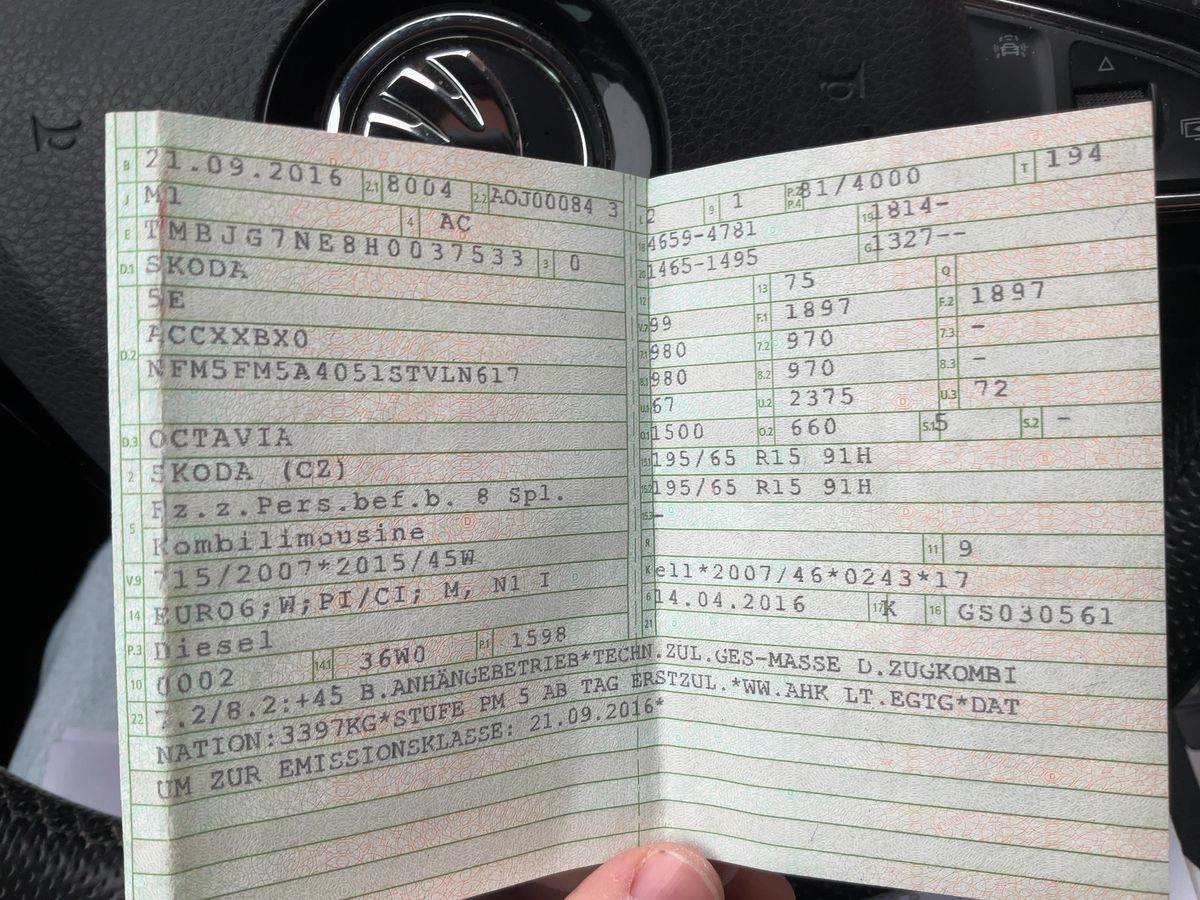 B 21.09.2016 2.1 8004 2.2 AOJ00084 3
J M1 4 AC
E TMBJG7NE8H0037533 3 0
D.1 SKODA
5E
D.2 ACCXXBX0
NFM5FM5A4051STVLN617
D.3 OCTAVIA
2 SKODA (CZ)
5 Fz.z.Pers.bef.b. 8 Spl.
Kombilimousine
V.9 715/2007*2015/45W
14 EURO6;W;PI/CI; M, N1 I
P.3 Diesel
10 0002 14.1 36W0 P.1 1598
L 2 9 1 P.2 P.4 81/4000 T 194
18 4659-4781 19 1814-
20 1465-1495 G 1327--
12 13 75 Q
V.7 99 F.1 1897 F.2 1897
7.1 980 7.2 970 7.3 -
8.1 980 8.2 970 8.3 -
U.1 67 U.2 2375 U.3 72
O.1 1500 O.2 660 S.1 5 S.2 -
15.1 195/65 R15 91H
15.2 195/65 R15 91H
15.3 -
R 11 9
K e11*2007/46*0243*17
6 14.04.2016 17 K 16 GS030561
21
22 7.2/8.2:+45 B.ANHÄNGEBETRIEB*TECHN.ZUL.GES-MASSE D.ZUGKOMBI
NATION:3397KG*STUFE PM 5 AB TAG ERSTZUL.*WW.AHK LT.EGTG*DAT
UM ZUR EMISSIONSKLASSE: 21.09.2016*